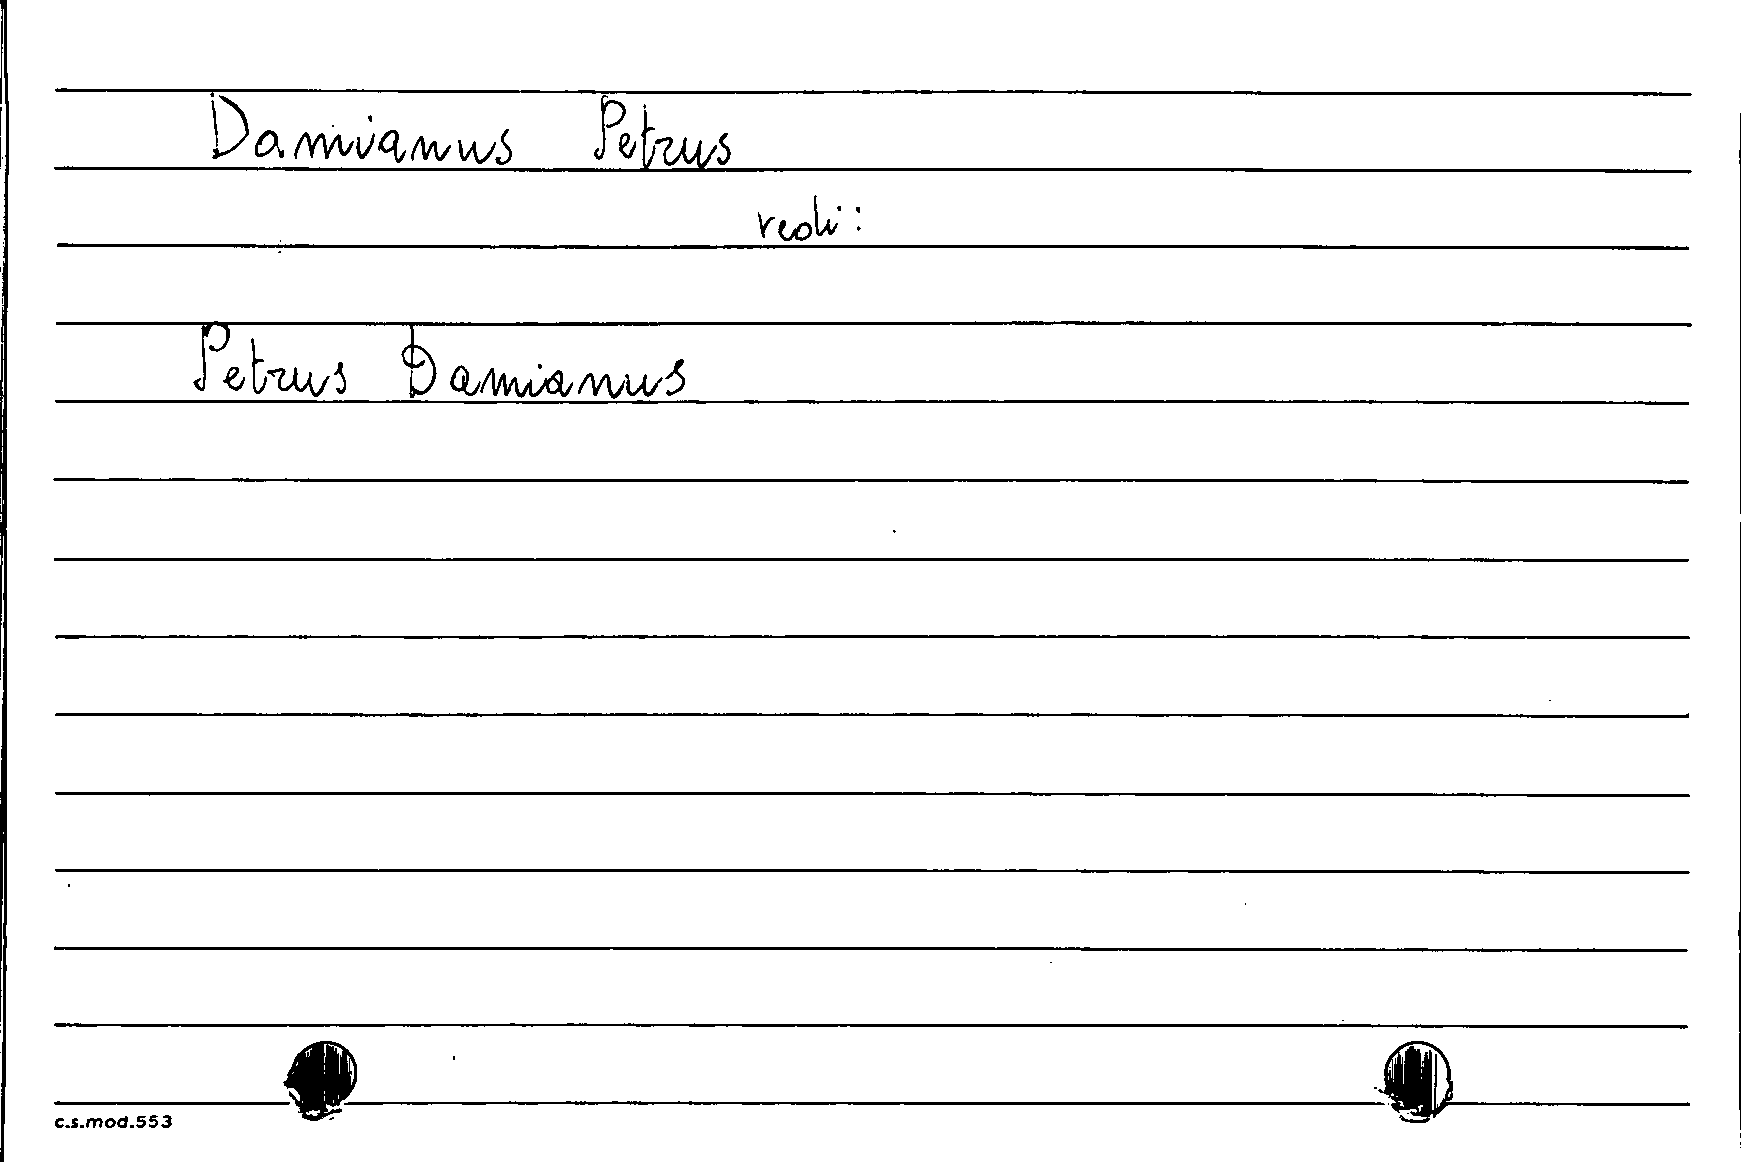 Damianus Petrus
vedi:
Petrus Damianus
c.s.mod.553